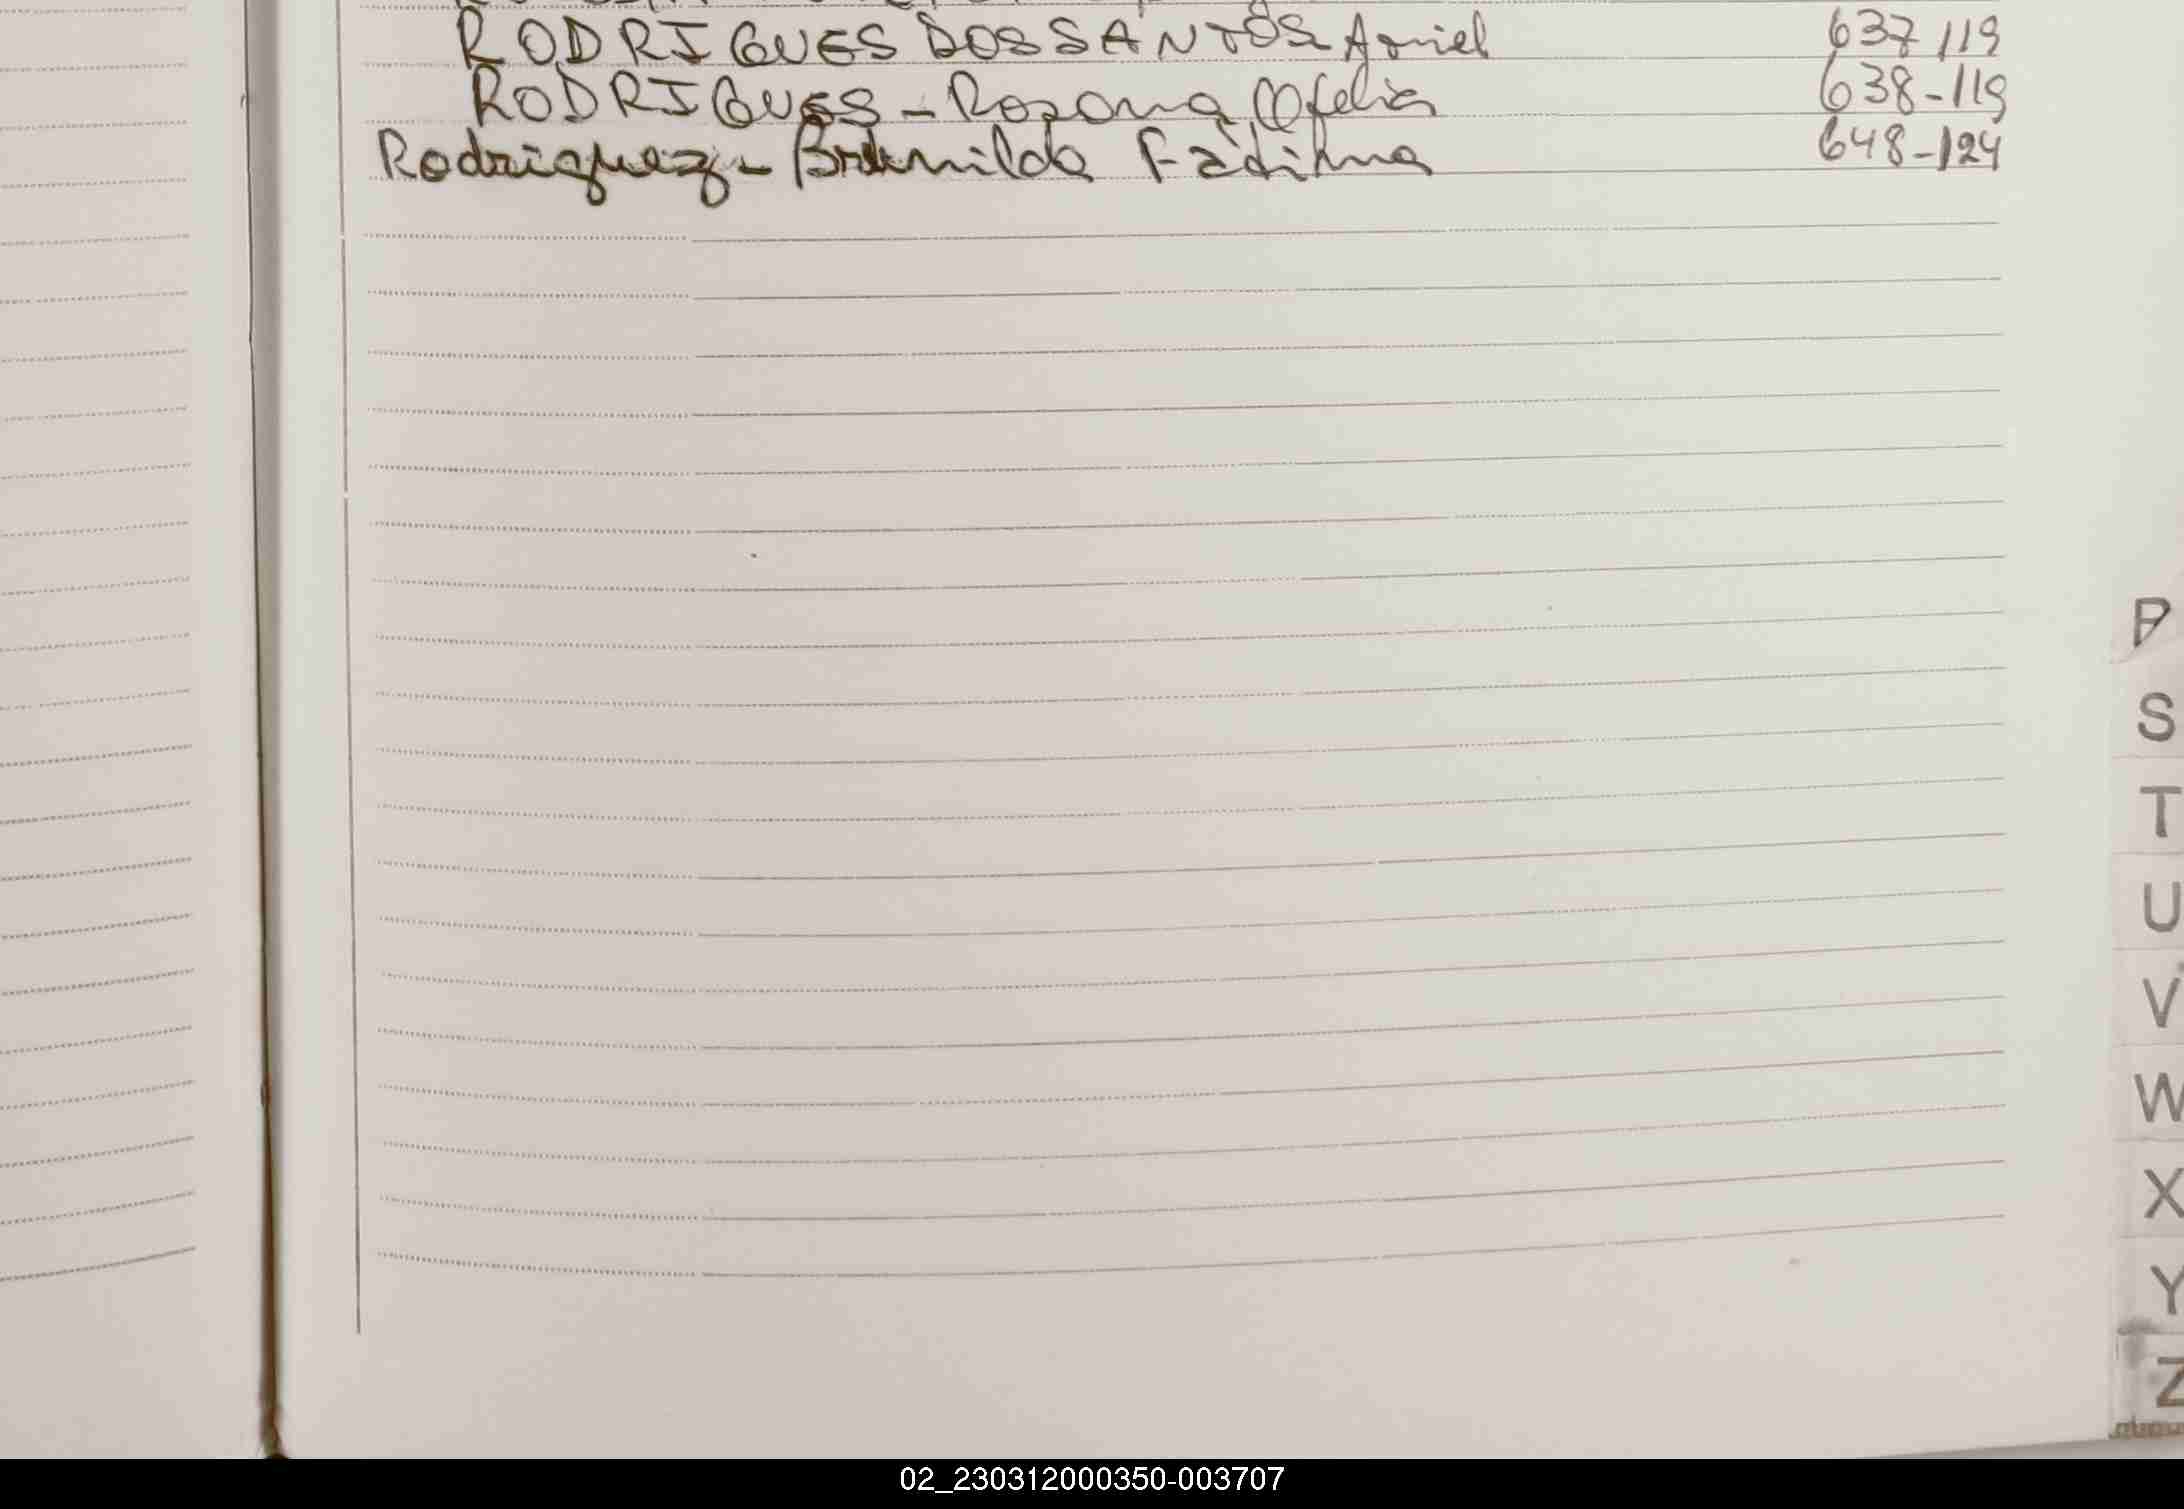 RODRIGUES DOS SANTOS Ariel 637 119
RODRIGUES - Rosana Ofelia 638-119
Rodriguez - Brunilda Fatima 648-124
P
S
T
U
V
W
X
Y
Z
02_230312000350-003707